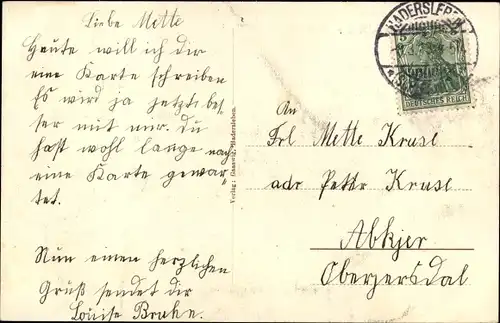 Liebe Mette
Heute will ich dir
eine Karte schreiben
Es wird ja jetzt bes-
ser mit mir. Du
hast wohl lange nach
eine Karte gewar-
tet.
Nun einen herzlichen
Gruß sendet dir
Louise Bruhn.
Verlag: Hadersleben.
HADERSLEBEN
5
DEUTSCHES REICH
An
Frl Mette Kruse
adr Peter Kruse
Abkjer
Oberjersdal